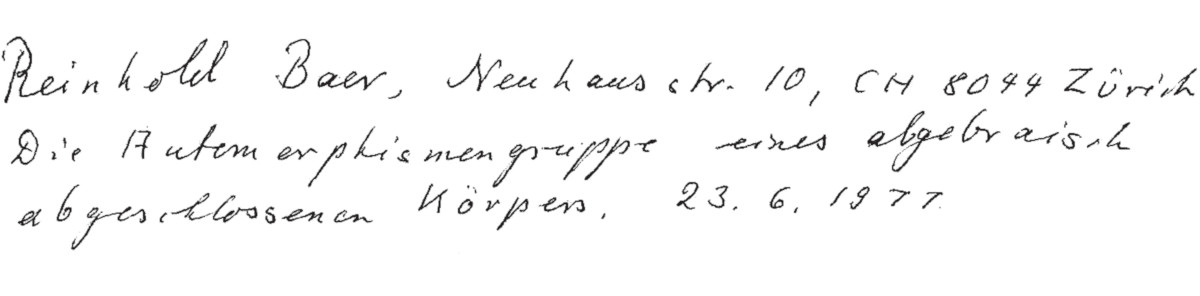 Reinhold Baer, Neuhausstr. 10, CH 8044 Zürich
Die Automorphismengruppe eines algebraisch
abgeschlossenen Körpers. 23. 6. 1977.